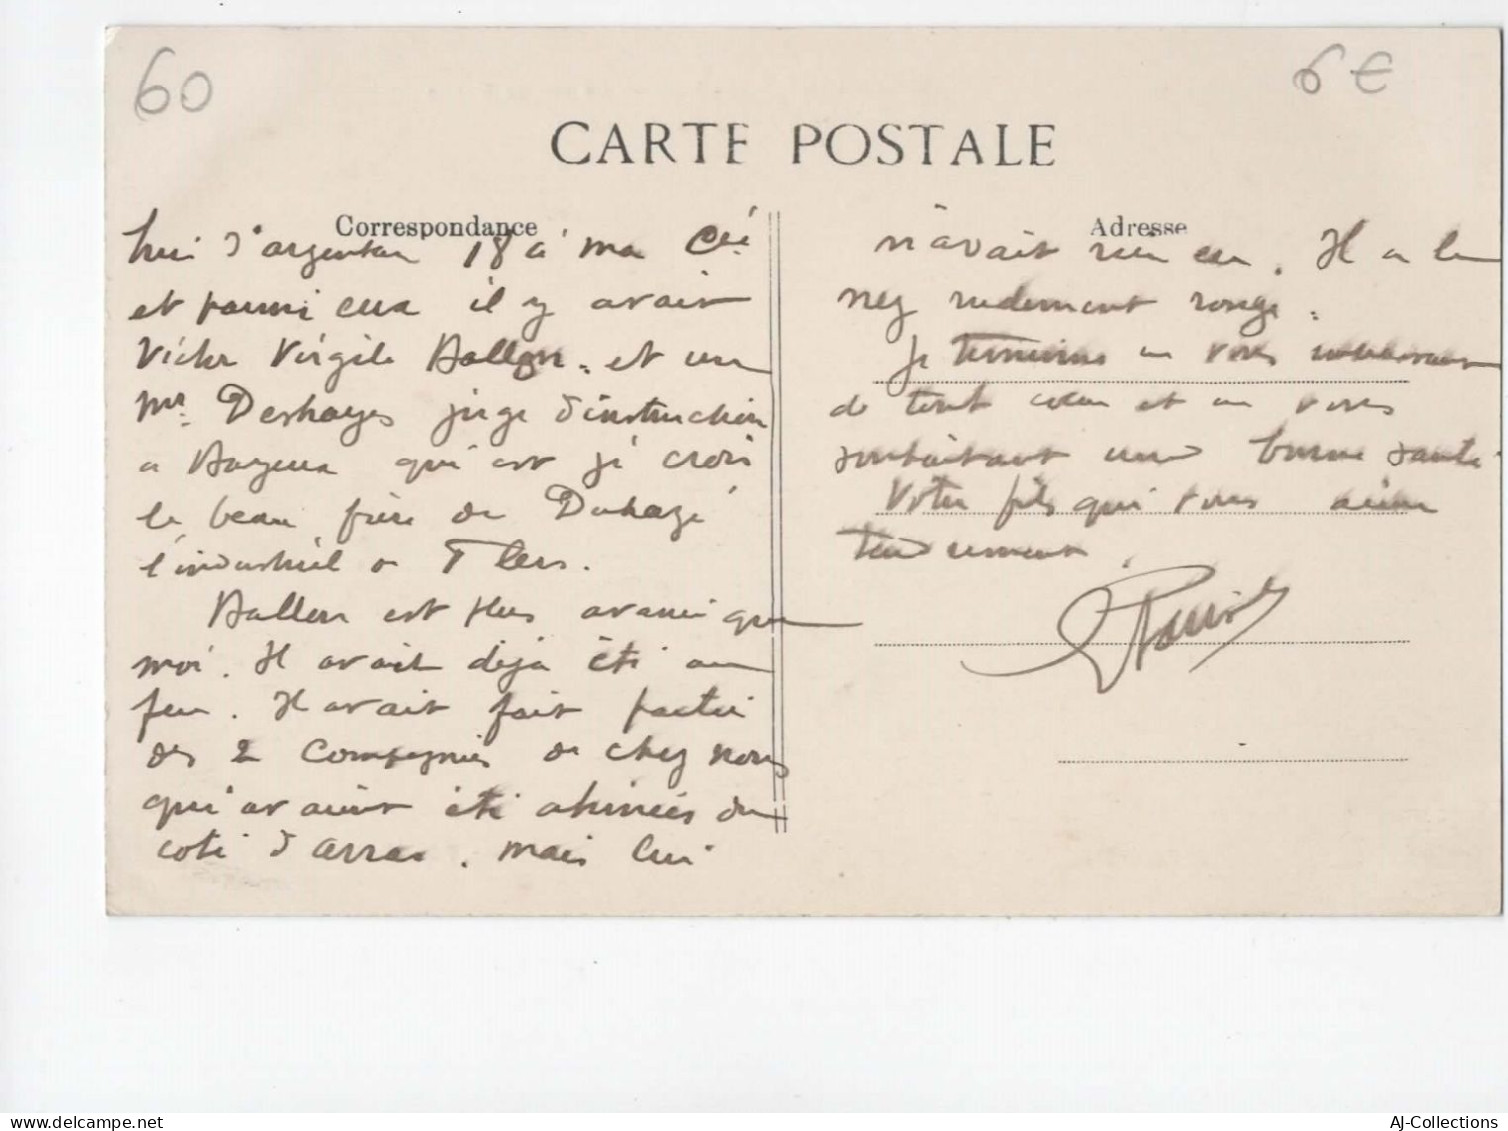 60
6€
CARTE POSTALE
Correspondance
d'argentan 18 à ma Cie
et parmi eux il y avait
Victor Virgile Ballon. et un
Mr. Deshayes juge d'instruction
a Bayeux qui est je crois
le beau frère de Duhazé
l'industriel a Flers.
Ballon est plus avancé que
moi. Il avait déjà été au
feu. Il avait fait partie
des 2 Compagnies de chez nous
qui avaient été abimées du
coté d'arras. mais lui
Adresse
n'avait rien eu. Il a le
nez rudement rouge.
Je termine en vous embrassant
de tout cœur et en vous
souhaitant une bonne santé
Votre fils qui vous aime
tendrement.
delcampe.net
AJ-Collections